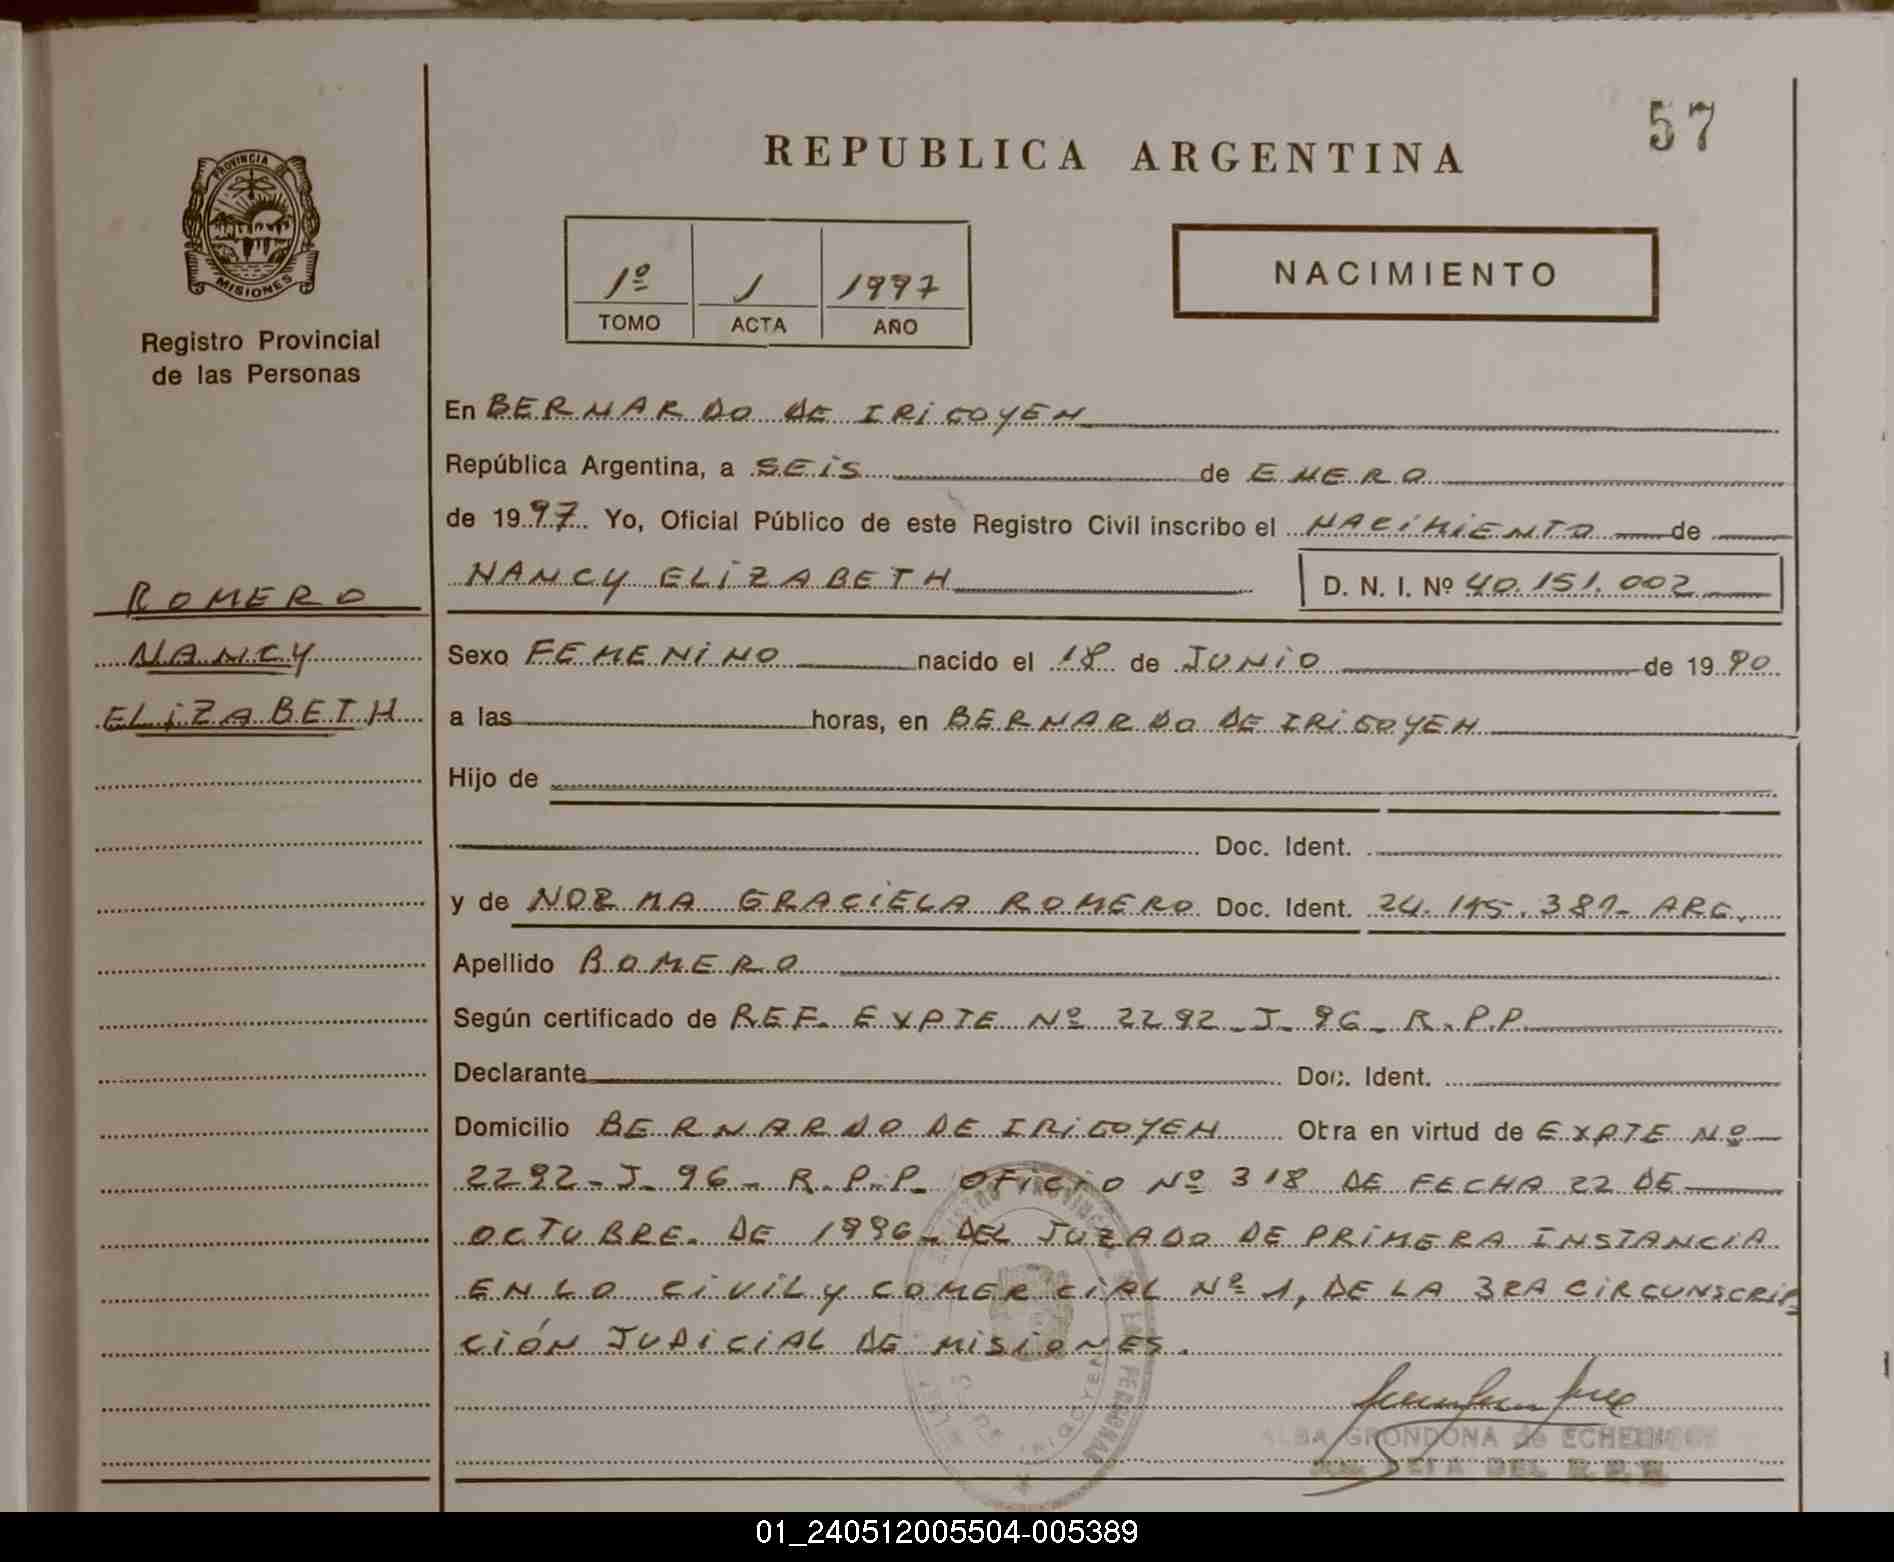 57
REPUBLICA ARGENTINA
PROVINCIA
MISIONES
Registro Provincial
de las Personas
1º 1 1997
TOMO ACTA AÑO
NACIMIENTO
En BERNARDO DE IRIGOYEN
República Argentina, a SEIS de ENERO
de 1997 Yo, Oficial Público de este Registro Civil inscribo el NACIMIENTO de
NANCY ELIZABETH D. N. I. Nº 40.151.002
ROMERO
NANCY
ELIZABETH
Sexo FEMENINO nacido el 18 de JUNIO de 1990
a las horas, en BERNARDO DE IRIGOYEN
Hijo de
Doc. Ident.
y de NORMA GRACIELA ROMERO Doc. Ident. ARG.
Apellido ROMERO
Según certificado de REF. EXPTE Nº 2292-J-96-R.P.P
Declarante Doc. Ident.
Domicilio BERNARDO DE IRIGOYEN Otra en virtud de EXPTE Nº
2292-J-96-R.P.P. OFICIO Nº 318 DE FECHA 22 DE
OCTUBRE. DE 1996-DEL JUZADO DE PRIMERA INSTANCIA
EN LO CIVIL Y COMERCIAL Nº 1, DE LA 3RA CIRCUNSCRIP-
CIÓN JUDICIAL DE MISIONES.
ALBA GRONDONA de
DEL R.P.P.
01_240512005504-005389